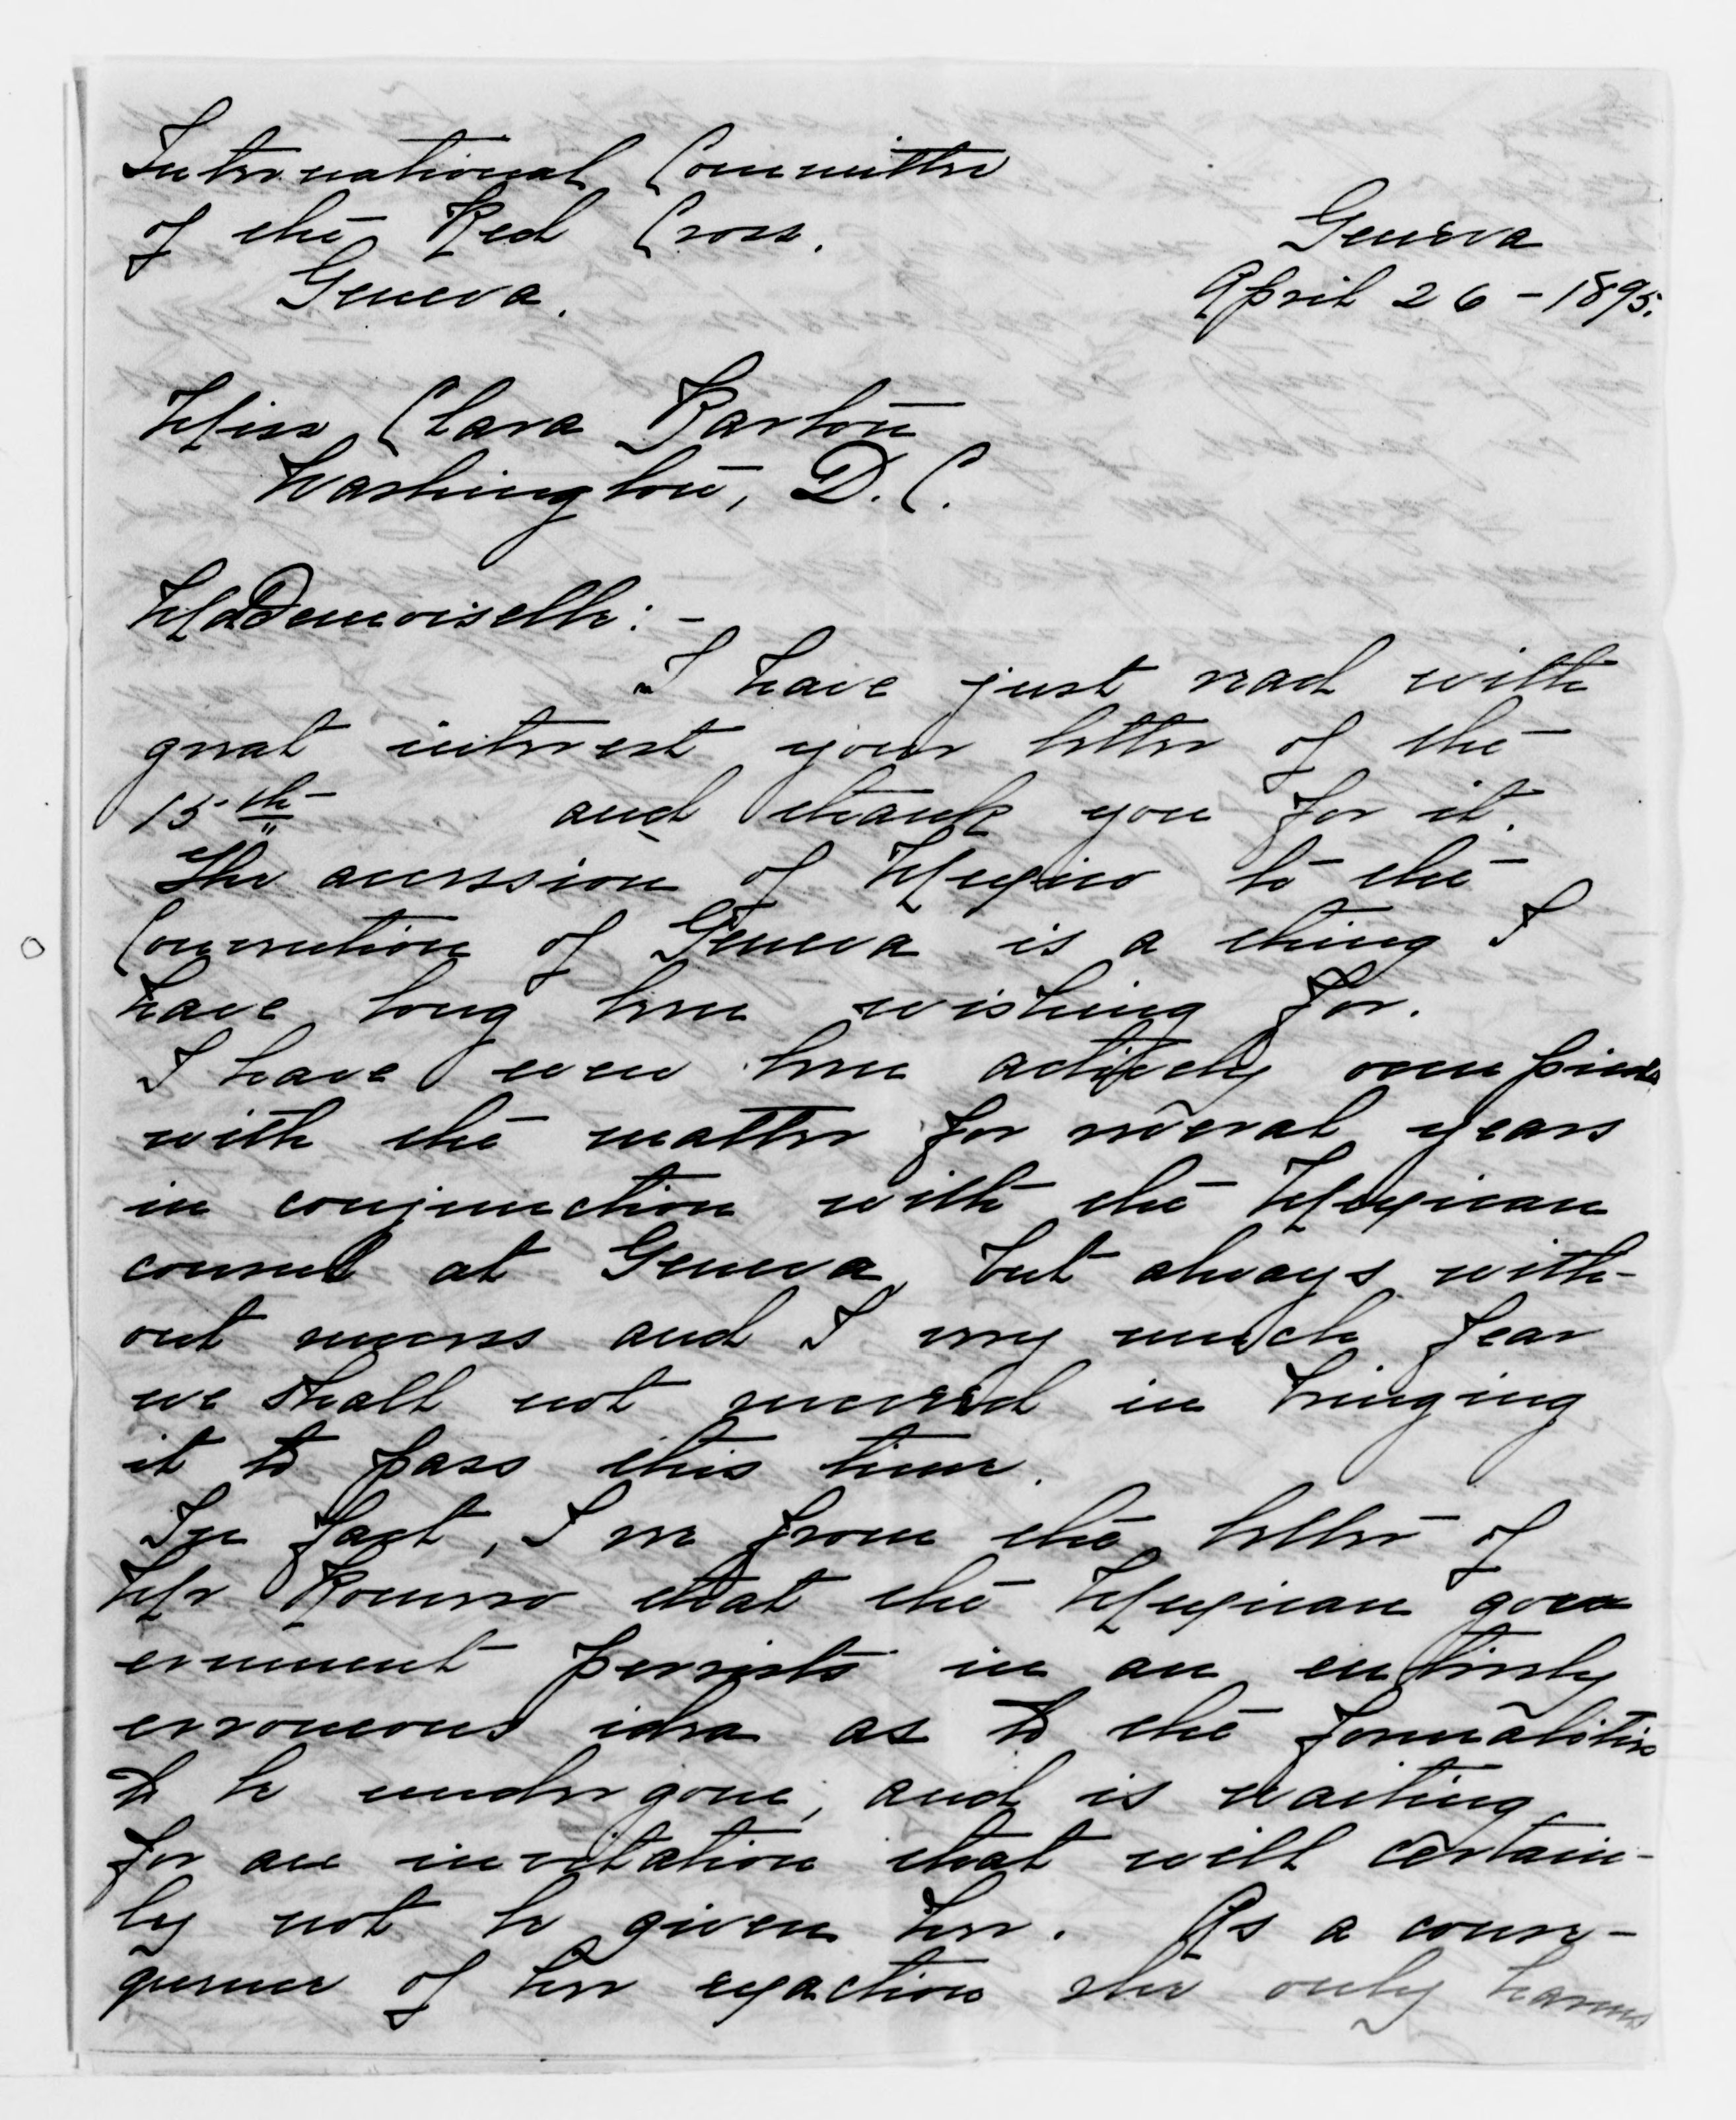 International Committee
of the Red Cross.
Geneva.
Geneva
April 26 - 1895.
Miss Clara Barton
Washington, D.C.
Mademoiselle: -
I have just read with
great interest your letter of the
15th and thank you for it.
The accession of Mexico to the
Convention of Geneva is a thing I
have long been wishing for.
I have even been actively occupied
with the matter for several years
in conjunction with the Mexican
consul at Geneva, but always with-
out success and I very much fear
we shall not succeed in bringing
it to pass this time.
In fact, I see from the letter of
Mr Romero that the Mexican gov
ernment persists in an entirely
erroneous idea as to the formalities
to be undergone, and is waiting
for an invitation that will certain-
ly not be given her. As a conse-
quence of her exaction she only harms